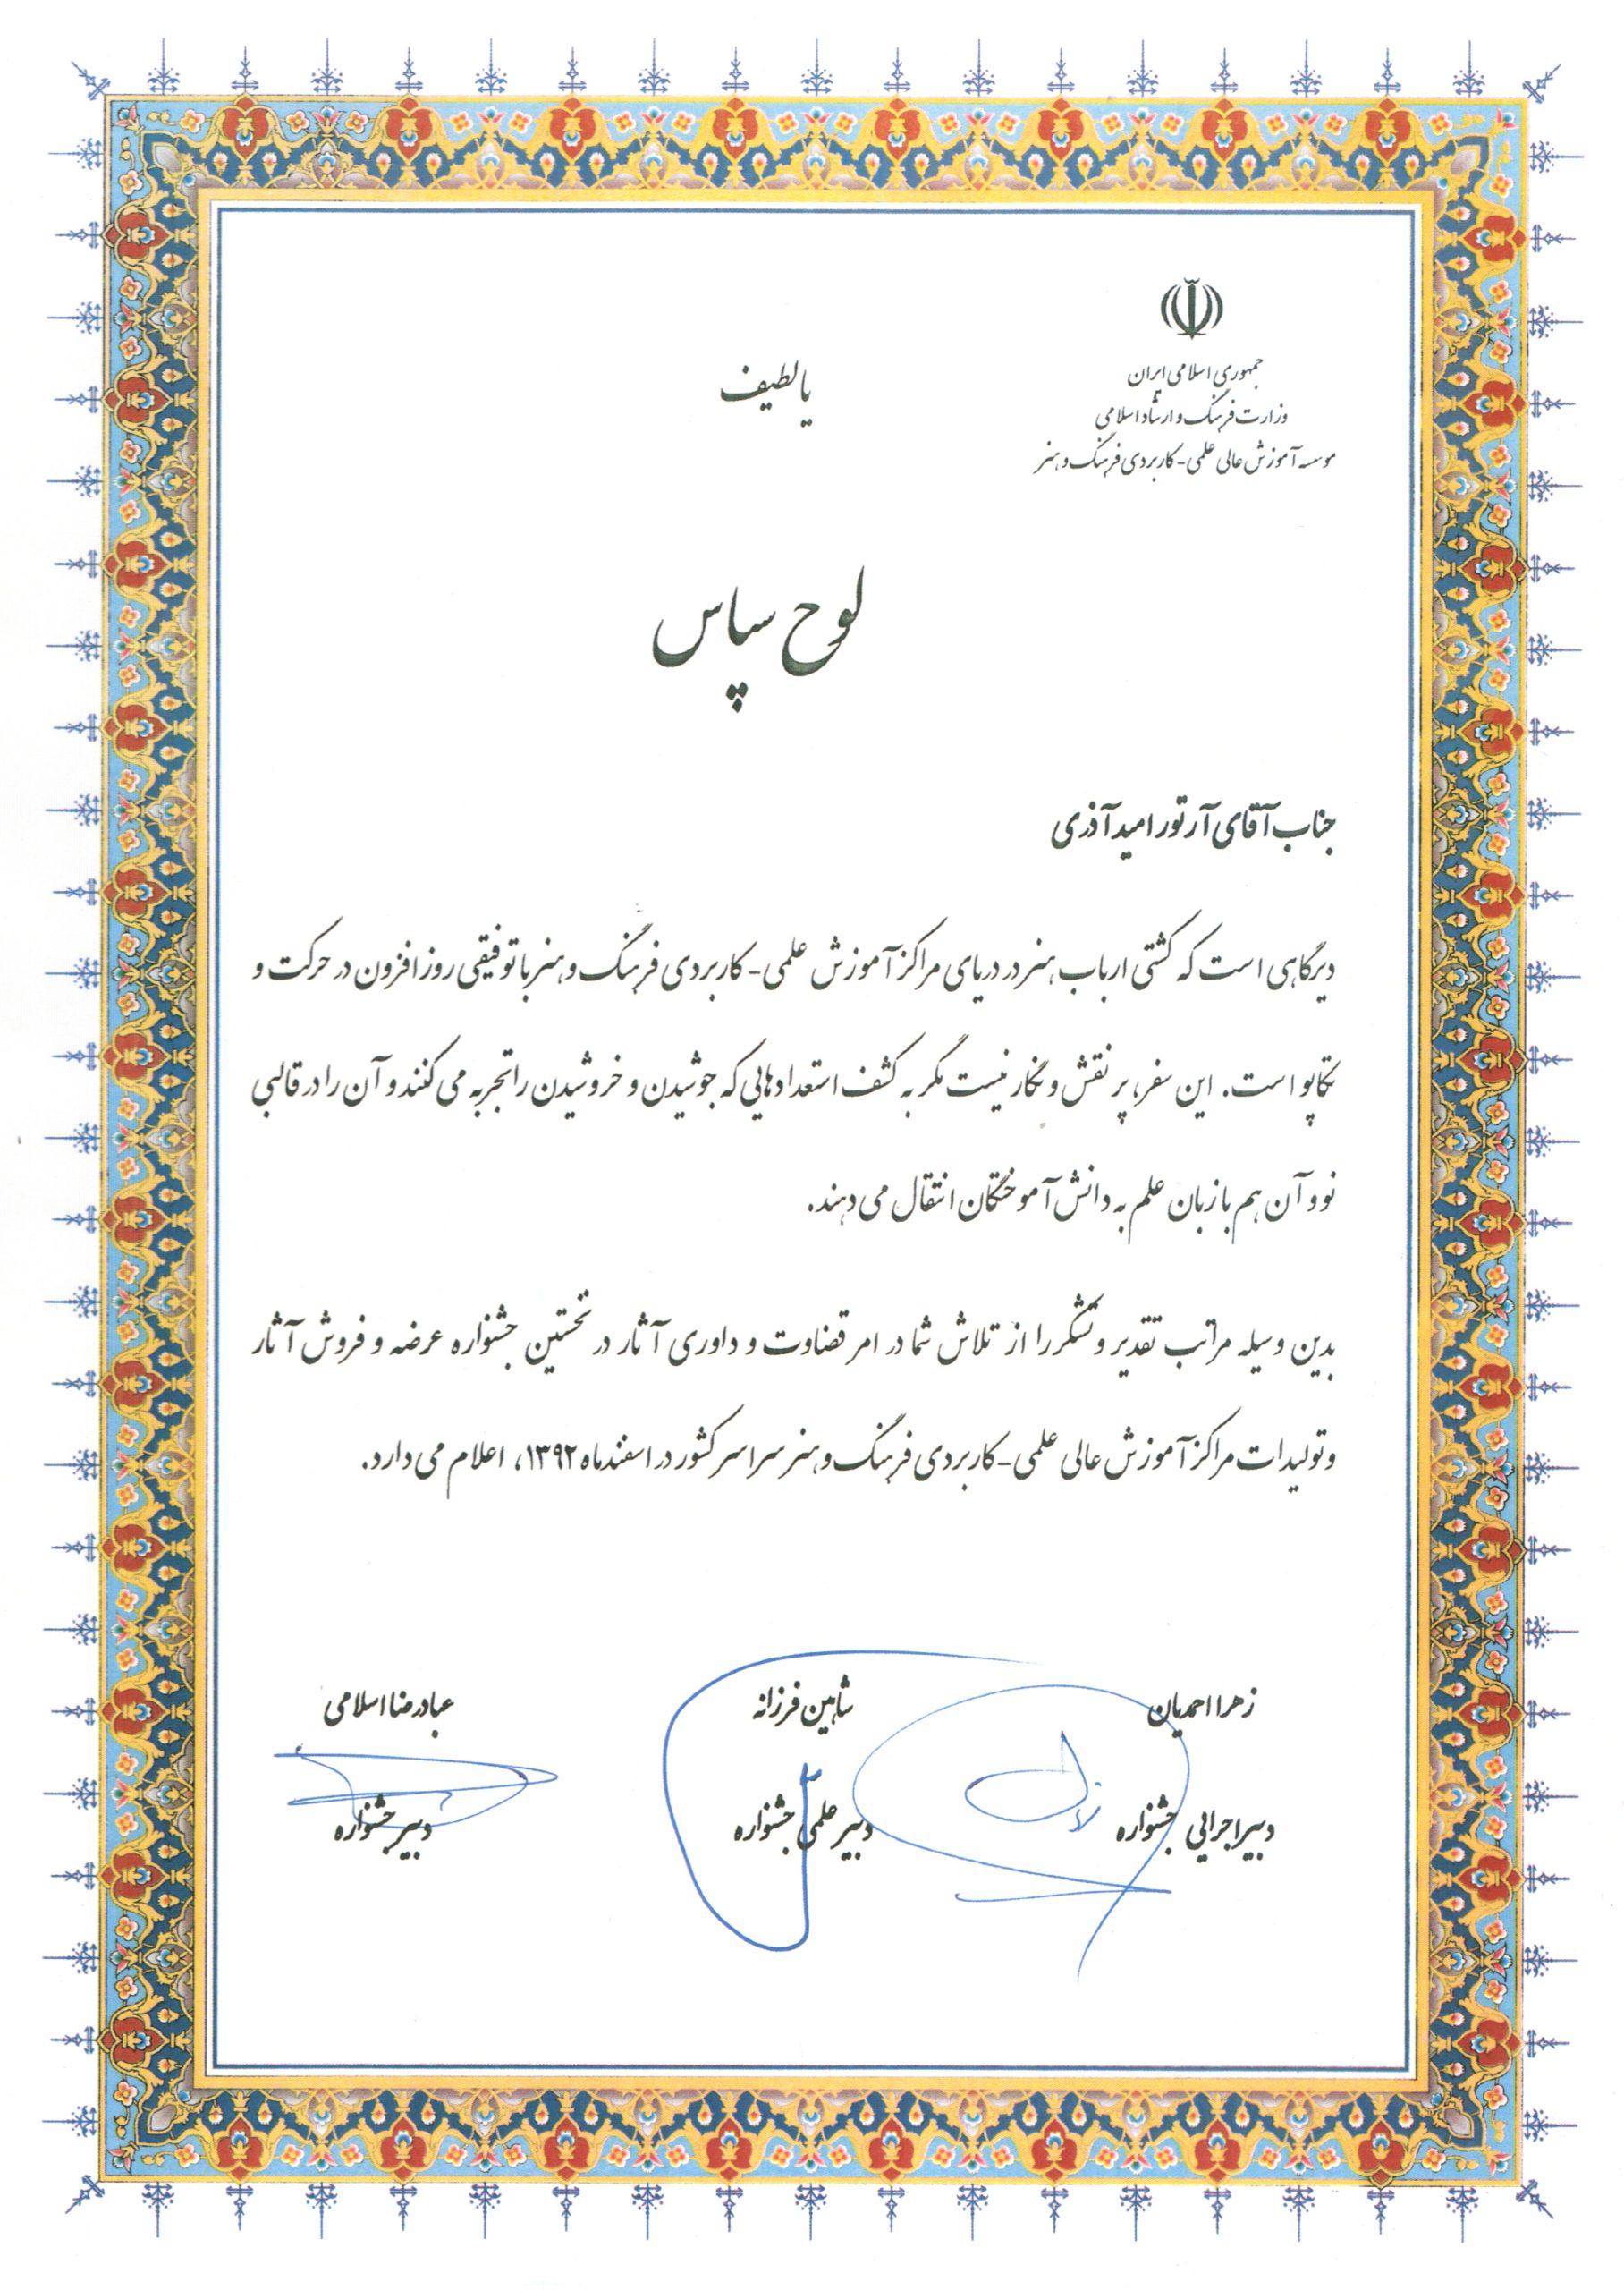 جمهوری اسلامی ایران
وزارت فرهنگ و ارشاد اسلامی
موسسه آموزش عالی علمی-کاربردی فرهنگ و هنر
یا لطیف
لوح سپاس
جناب آقای آرتور امید آذری
دیرگاهی است که کشتی ارباب هنر در دریای مراکز آموزش علمی-کاربردی فرهنگ و هنر با توفیقی روز افزون در حرکت و
تکاپو است. این سفر، پر نقش و نگار نیست مگر به کشف استعدادهایی که جوشیدن و خروشیدن را تجربه می کنند و آن را در قالبی
نو و آن هم با زبان علم به دانش آموختگان انتقال می دهند.
بدین وسیله مراتب تقدیر و تشکر را از تلاش شما در امر قضاوت و داوری آثار در نخستین جشنواره عرضه و فروش آثار
و تولیدات مراکز آموزش عالی علمی-کاربردی فرهنگ و هنر سراسر کشور در اسفندماه ۱۳۹۲، اعلام می دارد.
زهرا احمدیان
دبیر اجرایی جشنواره
شاهین فرزانه
دبیر علمی جشنواره
عبادرضا اسلامی
دبیر جشنواره